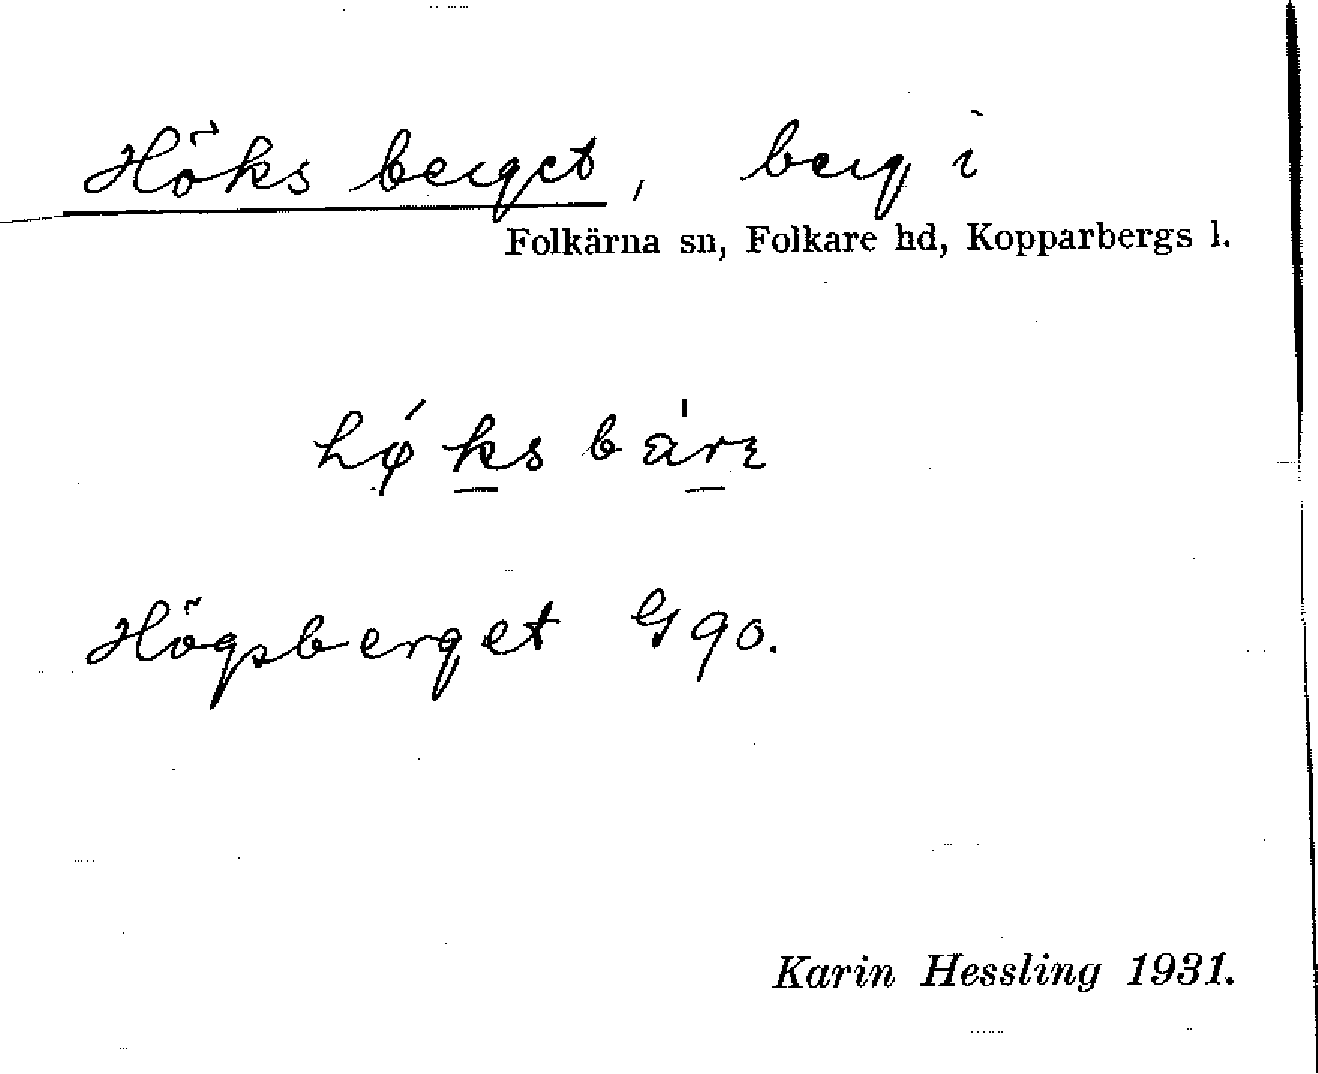 Höksberget, berg i
Folkärna sn, Folkare hd, Kopparbergs l.
Högsberget G 90.
Karin Hessling 1931.